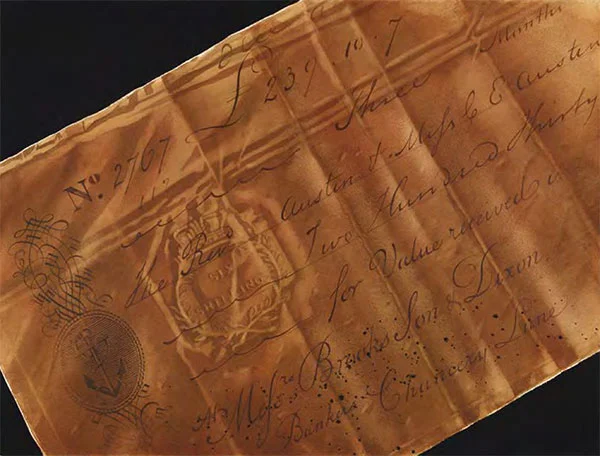 £ 239 10. 7
No. 2767
Three Months
The Rev. Austen & Miss C E Austen
Two Hundred Thirty
for Value received
At Messrs Brooks Son & Dixon.
Bankers Chancery Lane